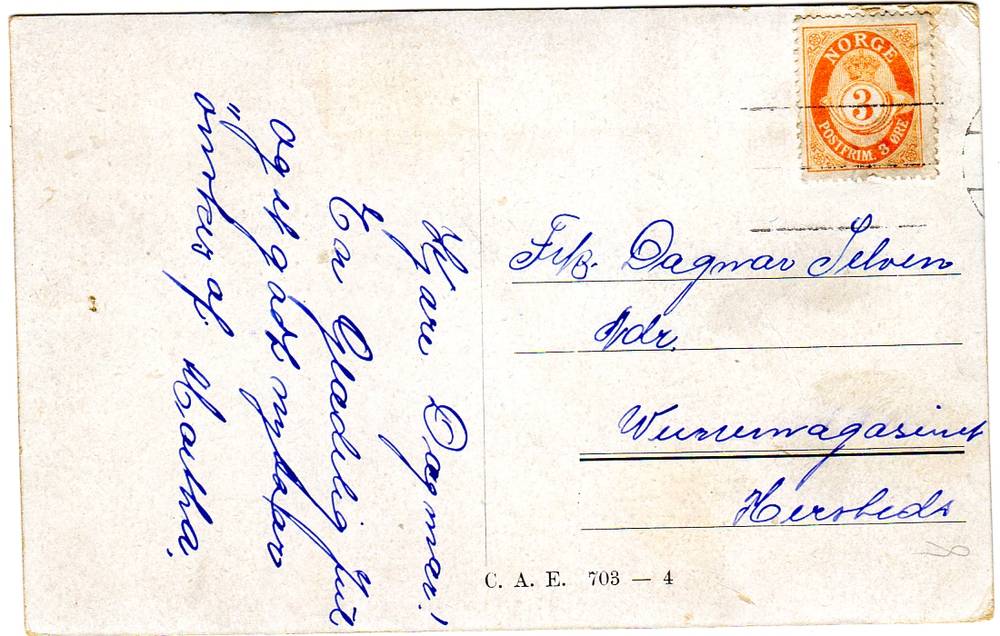 Kjære Dagmar!
En Glædelig Jul
og et godt nytaar
önskes af Martha.
NORGE
3
POSTFRIM. 3 ØRE
Frk. Dagmar Selven
Adr.
Hersteds
C. A. E. 703 — 4